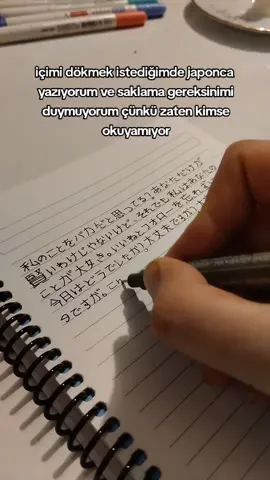 içimi dökmek istediğimde japonca
yazıyorum ve saklama gereksinimi
duymuyorum çünkü zaten kimse
okuyamıyor
私のことをバカだと思ってる?あなただけが
賢いわけじゃないけど、それでも私はあなたの
ことが大好き。いいねとフォローを忘れず
今日はどうでしたか?大丈夫ですか?
ですが。こ